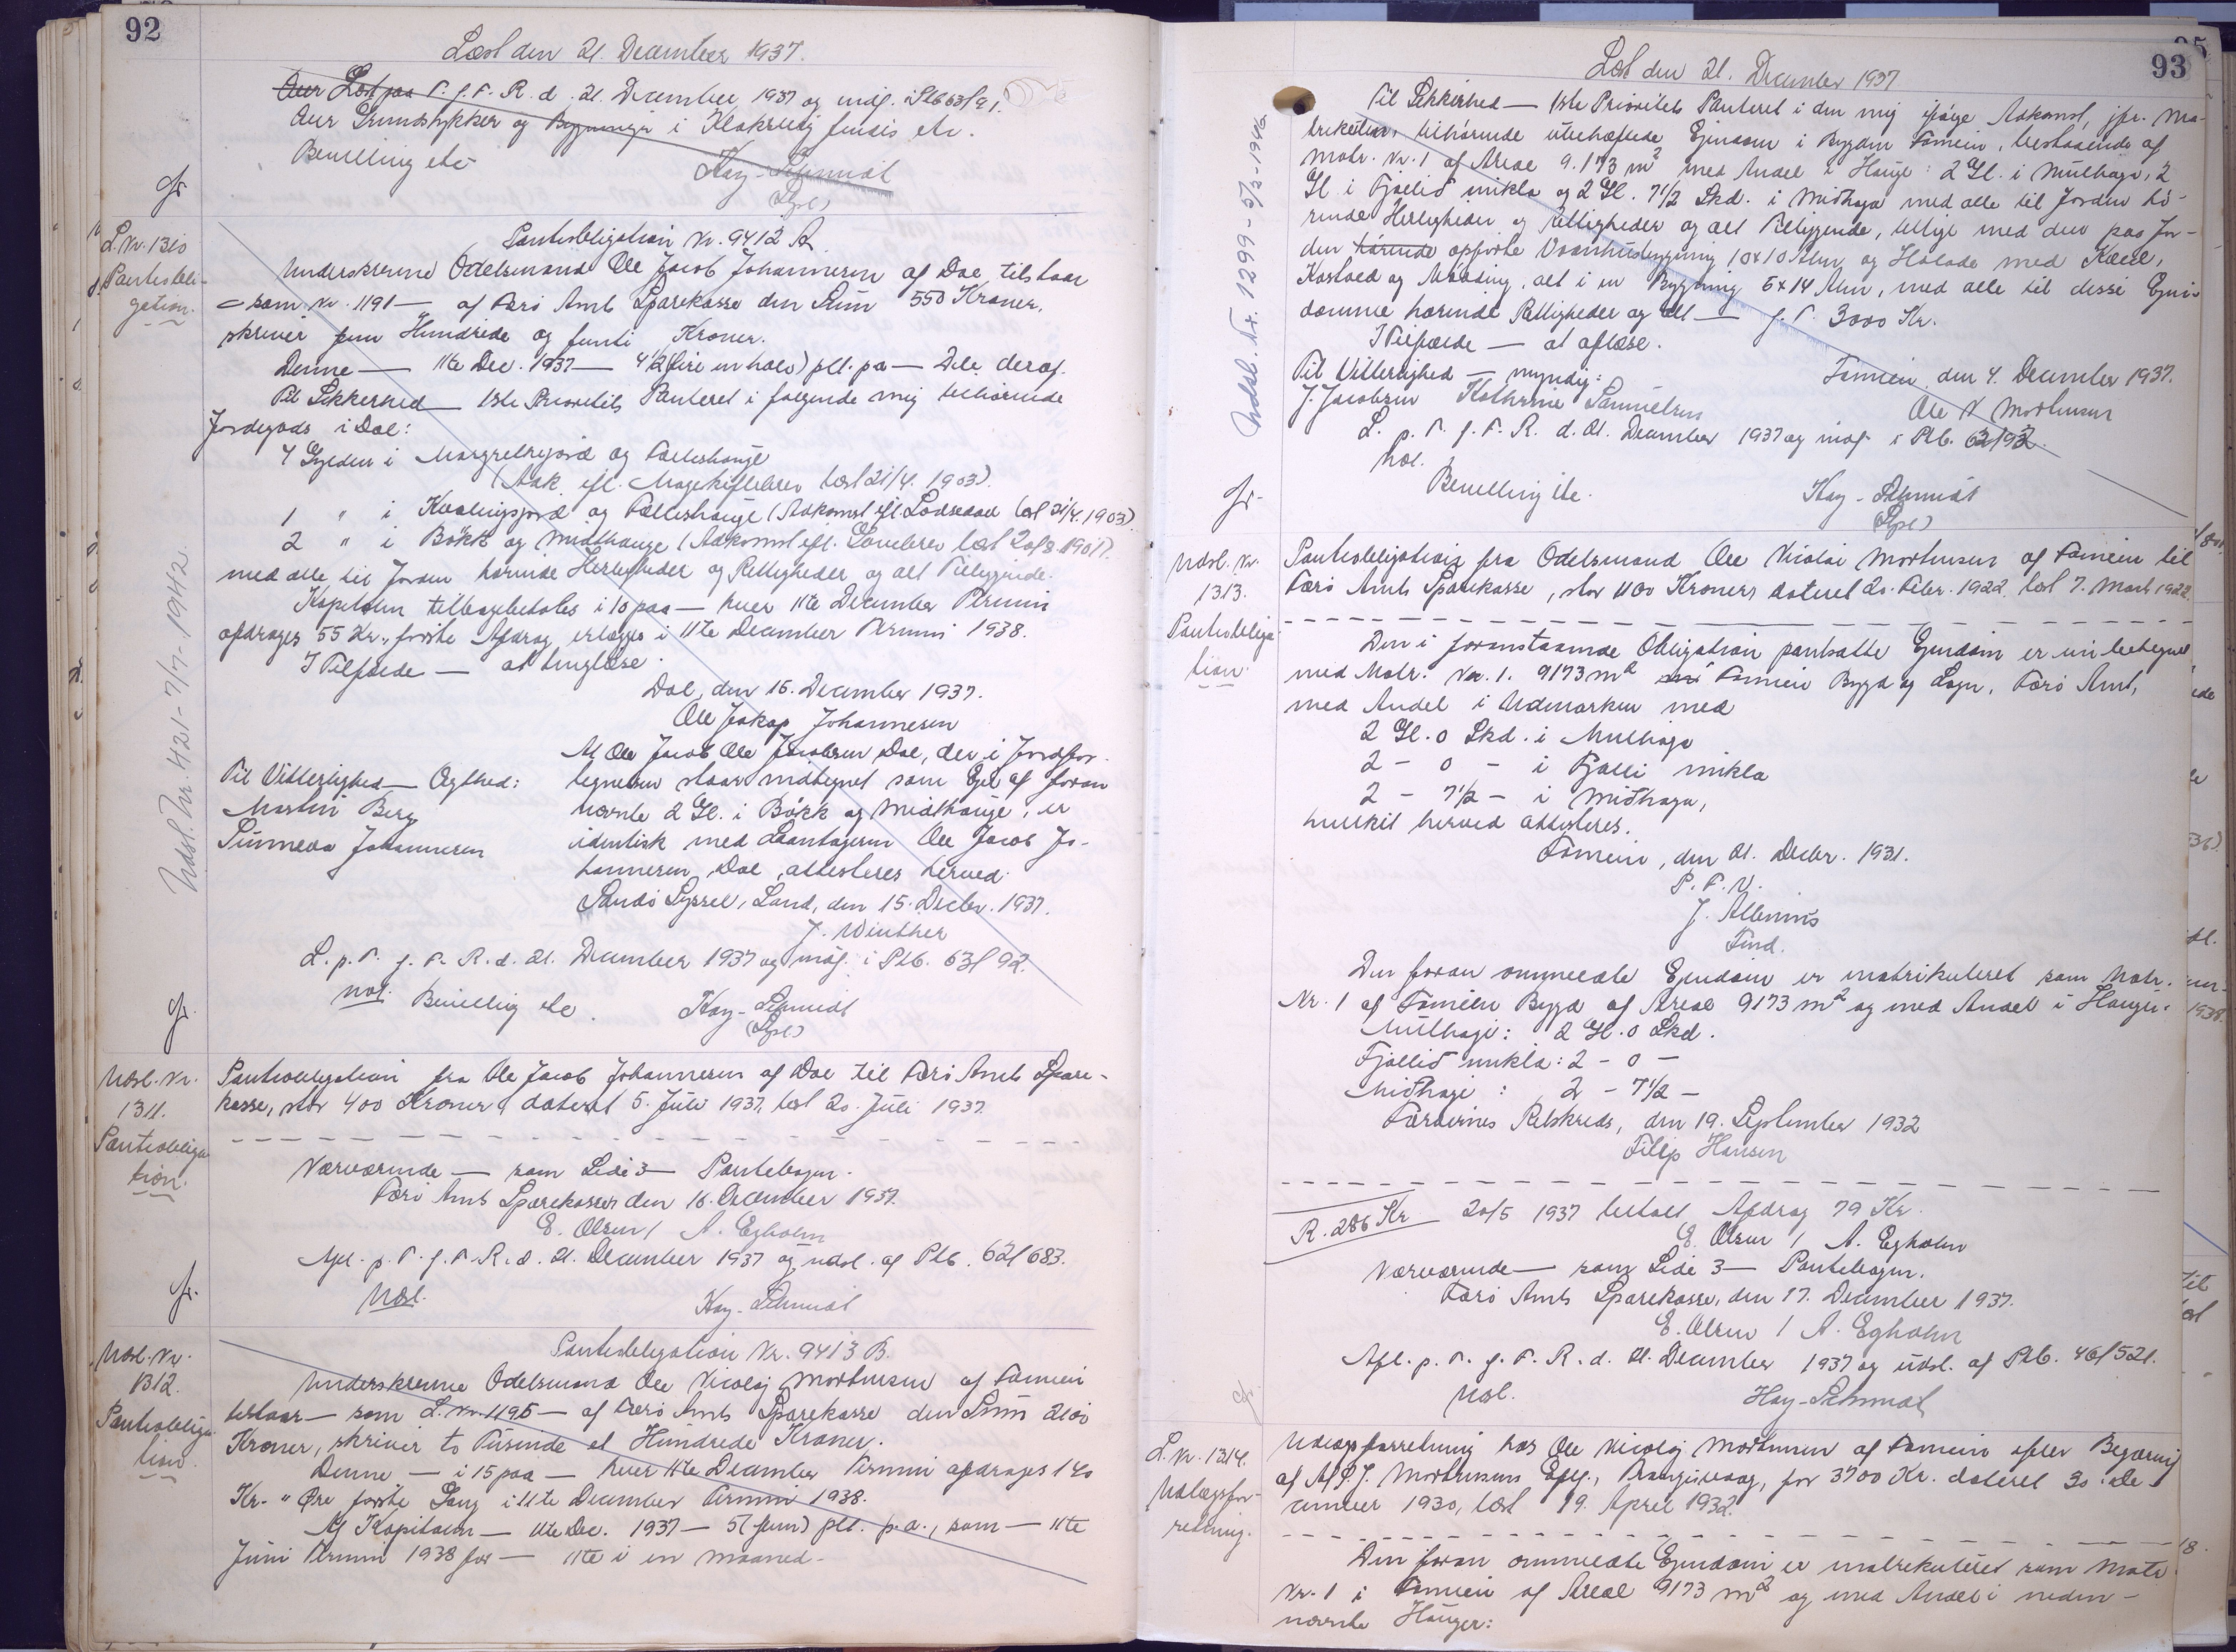 92
Læst den 21. December 1937.
Aur Læst paa T. f. F. R. d. 21. December 1937 og indf. i Ptb 63/91.
Aur Grundstykker og Bygninger i Klaksvig findes etc.
Bevilling etc
Kay-Schmidt
(Sgsl)
gr
L. Nr. 1310
Pantobli-
gation.
Pantobligation Nr. 9412 A
Underskrevne Odelsmand Ole Jacob Johannesen af Dal tilstaar
- som Nr. 1191 - af Færø Amts Sparekasse den Sum 550 Kroner,
skriver fem Hundrede og femti Kroner.
Denne — 11te Dec. 1937 — 4½ (fire en halv) pCt. pa — Dele deraf.
Til Sikkerhed — 1ste Prioritets Panteret i følgende mig tilhørende
Jordegods i Dal:
4 Gylden i Margretejord og Fælleshauge
(Adk. efl. Mageskiftebrev læst 21/4. 1903).
1 " i Kvalingsjord og Fælleshauge (Adkomst efl. Lodseddel læst 21/4. 1903)
2 " i Bökk og Midthauge (Adkomst efl. Gavebrev læst 20/8 1901).
med alle til Jorden hørende Herligheder og Rettigheder og alt Tilliggende.
Kapitalen tilbagebetales i 10 paa — hver 11te December Termin
afdrages 55 Kr., første Afdrag erlægges i 11te December Termin 1938.
I Tilfælde — at tinglæse.
Dal, den 15. December 1937.
Ole Jakop Johannesen
Til Vitterlighed — Ægthed:
Martin Berg
Sunneva Johannesen
At Ole Jacob Ole Jacobsen Dal, der i Jordfor-
tegnelsen staar indtegnet som Ejer af foran
nævnte 2 Gl. i Bökk og Midthauge, er
identisk med Laantageren Ole Jacob Jo-
hannesen, Dal, attesteres herved.
Sandø Syssel, Sand, den 15. Decbr. 1937.
J. Winther
L. p. T. f. F. R. d. 21. December 1937 og indf. i Ptb. 63/92.
Udsl. Nr. 421 - 7/7 - 1942.
Bevilling etc.
Kay-Schmidt
(Sgsl)
gr.
Udsl. Nr.
1311.
Pantobliga
tion.
Pantobligation fra Ole Jacob Johannesen af Dal til Færø Amts Spare-
kasse, stor 400 Kroner dateret 5. Juli 1937, læst 20. Juli 1937.
Nærværende — som Side 3 — Pantebogen.
Færø Amts Sparekasse den 16. December 1937.
E. Olsen / A. Egholm
Afl. p. T. f. F. R. d. 21. December 1937 og udsl. af Ptb. 62/683.
Udsl.
Kay-Schmidt
gr.
Udsl. Nr.
1312.
Pantobliga
tion.
Pantobligation Nr. 9413 B.
Underskrevne Odelsmand Ole Nicolaj Mortensen af Famien
tilstaar — som L. Nr. 1195 — af Færø Amts Sparekasse den Sum 2100
Kroner, skriver to Tusinde et Hundrede Kroner.
Denne — i 15 paa — hver 11te December Termin afdrages 140
Kr. " Øre første Gang i 11te December Termin 1938.
Af Kapitalen — 11te Dec. 1937 — 5 (fem) pCt. p.a., som — 11te
Juni Termin 1938 for — 11te i en Maaned.
93
Læst den 21. December 1937
Til Sikkerhed — 1ste Prioritets Panteret i den mig ifølge Adkomst, jfr. Ma-
trikelen, tilhørende ubehæftede Ejendom i Bygden Famien, bestaaende af
Matr. Nr. 1 af Areal 9.173 m² med Andel i Hauge: 2 Gl. i Mulhaga, 2
Gl. i Fjøllið mikla og 2 Gl. 7½ Skd. i Miðhaga med alle til Jorden hø-
rende Herligheder og Rettigheder og alt Tilliggende, tillige med den paa Jor-
den hørende opførte Vaaningsbygning 10x10 Alen og Hølade med Kælder,
Kostald og Mødding, alt i en Bygning 5x14 Alen, med alle til disse Ejen-
domme hørende Rettigheder og alt — f. T. 3000 Kr.
I Tilfælde — at aflæse.
Til Vitterlighed — myndig:
Famien, den 4. December 1937.
J. Jacobsen Kathrine Samuelsen
Ole N Mortensen
L. p. T. f. F. R. d. 21. December 1937 og indf. i Ptb. 63/92.
Udsl. Nr. 1299 - 5/3 - 1946.
Bevilling etc.
Kay-Schmidt
(Sgsl)
gr.
Udsl. Nr.
1313.
Pantobliga
tion.
Pantobligation fra Odelsmand Ole Nicolai Mortensen af Famien til
Færø Amts Sparekasse, stor 1100 Kroner dateret 20. Febr. 1922, læst 7. Marts 1922.
Den i foranstaaende Obligation pantsatte Ejendom er nu betegnet
med Matr. Nr. 1. 9173 m² Famien Bygd og Sogn, Færø Amt,
med Andel i Udmarken med
2 Gl. 0 Skd. i Mulhaga
2 - 0 - i Fjølli mikla
2 - 7½ - i Miðhaga,
hvilket herved attesteres.
Famien, den 21. Decbr. 1931.
P. F. V.
J. Albinus
Fmd.
Den foran ommeldte Ejendom er matrikuleret som Matr.
Nr. 1 af Famien Bygd af Areal 9173 m² og med Andel i Haugen:
Mulhagi: 2 Gl. 0 Skd.
Fjøllið mikla: 2 - 0 -
Miðhagi: 2 - 7½ -
Færøernes Retskreds, den 19. September 1932
Filip Hansen
R. 286 Kr 20/5 1937 betalt Afdrag 79 Kr.
E. Olsen / A. Egholm
Nærværende — som Side 3 — Pantebogen.
Færø Amts Sparekasse, den 17. December 1937.
E. Olsen / A. Egholm
Afl. p. T. f. F. R. d. 21. December 1937 og udsl. af Ptb. 46/521.
Udsl.
Kay-Schmidt
gr
L. Nr. 1314.
Udlægsfor-
retning.
Udlægsforretning hos Ole Nicolaj Mortensen af Famien efter Begæring
af A/S J. Mortensens Eftf., Trangisvaag, for 3700 Kr. dateret 30. De-
cember 1930, læst 19. April 1932.
Den foran ommeldte Ejendom er matrikuleret som Matr.
Nr. 1 i Famien af Areal 9173 m² og med Andel i neden-
nævnte Hauger: